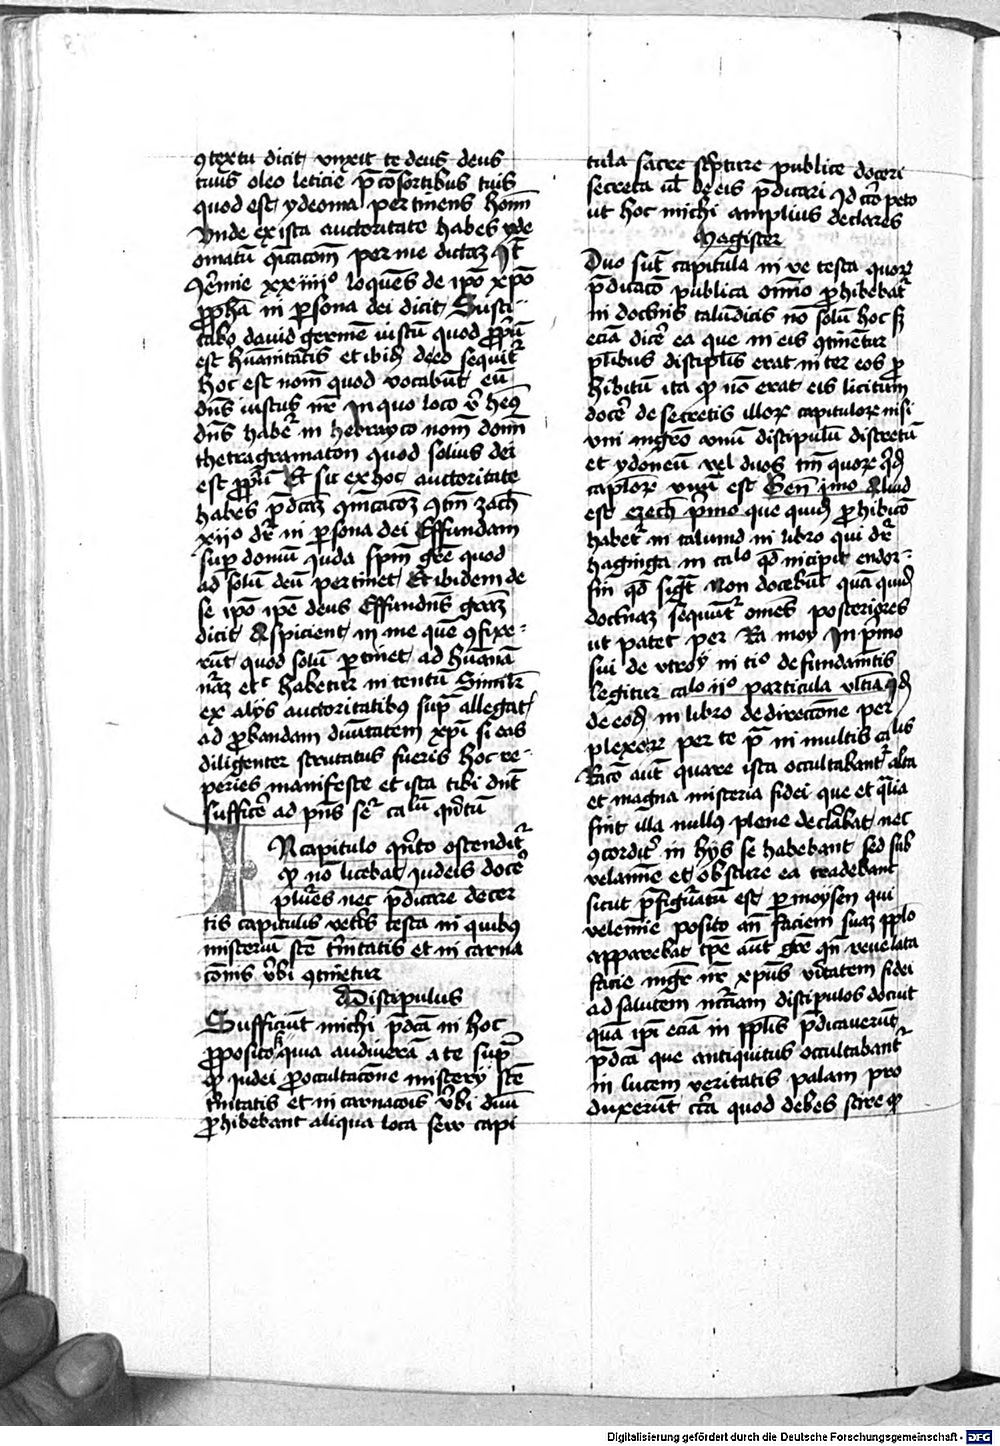 ꝯtextu dicit vnxit te deus deus
tuus oleo leticie p̄ cōsortibus tuis
quod est ydeoma pertinens homī
Vnde ex ista auctoritate habes yde
omatū per me dictaꝫ Itē
Jeremie xxiiiiᵒ loquēs de ipō xpō
ꝓphā in ꝑsona dei dicit Susci
tabo dauid germē iustū quod ꝓpriū
est hūanitatis et ibidē deeo sequit̄
Hoc est nomē quod vocabūt eū
dn̄s iustus nr̄ In quo loco
dn̄s habet̄ in hebrayco nomē domī
thetragramaton quod solius dei
est ꝓpriū Et sic ex hoc auctoritate
habes p̄dcāꝫ zach
xijᵒ dr̄ in ꝑsona dei Effundam
sup domū Juda spm̄ grē quod
ad solū deū pertinet Et ibidem de
se ipō ipē deus Effundēs grāꝫ
dicit Aspicient in me quē ꝯfixe-
rūt quod solū ꝑtinet ad hūanā
nāꝫ etc habetur in tentū Similr̄
ex alijs auctoritatibꝰ sup̄ allegat
ad ꝓbandam diuītatem xpī si eas
diligenter scrutatus fueris Hoc re-
peries manifeste et ista tibi dn̄t
sufficē ad pn̄s
In capitulo qn̄to ostendit̄
ꝙ nō licebat Judeis docē
plures nec p̄dicare de cer
tis capitulis vetris testa in quibꝰ
misteriū scē t̄nitatis et in carna
cōnis v̄bi ꝯtinetur
Discipulus
Sufficiūt michi p̄dcā in hoc
ꝓposito quia audiuerā a te sup̄
ꝙ iudei ꝓ occultacōne misterij scē
t̄nitatis et in carnacōis v̄bi diuī
ꝓhibebant aliqua loca seu capi
tula sacre scripture publice doceri
secreta ul̄ de eis p̄dicari Id cīrco peto
ut hoc michi amplius declares
Magister
Duo sūt capitula in ve testa quoꝝ
p̄dicacō publica omīo ꝓhibebat̄
in docīnis talmudicis nō solū hoc sꝫ
eciā dicē ea que in eis ꝯtinētur
pl̄ibus discipl̄is erat inter eos ꝓ
hibitū ita ꝙ nō erat eis licitum
docē de secretis illoꝝ capituloꝝ nisi
vni mgrō vnū discipulū discretū
et ydoneū vel duos tm̄ quoꝝ qdē
caploꝝ vnū est Gen̄ pmo Aliud
est ezech p̄mo que quidē ꝓhibicō
habet̄ in talmud in libro qui dr̄
haginga in calo qd̄ incipit endor-
sin qd̄ sigt̄ Non docebūt quā quidē
docīnaꝫ sequūt̄ omēs posteriores
ut patet per Ra moy In p̄mo
sui de vtroy in tiᵒ de fundamtis
legitur calo iiᵒ particula vltīa qdē
de eodē in libro de direccōne per
plexoꝝ per te p̄ in multis calis
Racō aūt quare ista occultabant̄ alta
et magna misteria fidei que et qīlia
sint illa nullꝰ plene declābat nec
ꝯcordit̄ in hijs se habebant sed sub
velamīe et obscure ea tradebant
sicut p̄figuratū est per moysen qui
velemīe posito an̄ faciem suaꝫ pplo
apparebat tp̄e aūt grē qn̄ reuelata
facie mgr̄ nr̄ xpūs v̄itatem fidei
ad salutem nc̄ciam discipulos docuit
quā ipī eciā in ppl̄is p̄dicauerūt
p̄dcā que antiquitus occultabant̄
in lucem veritatis palam pro
duxerūt cīca quod debes scire ꝙ
Digitalisierung gefördert durch die Deutsche Forschungsgemeinschaft - DFG